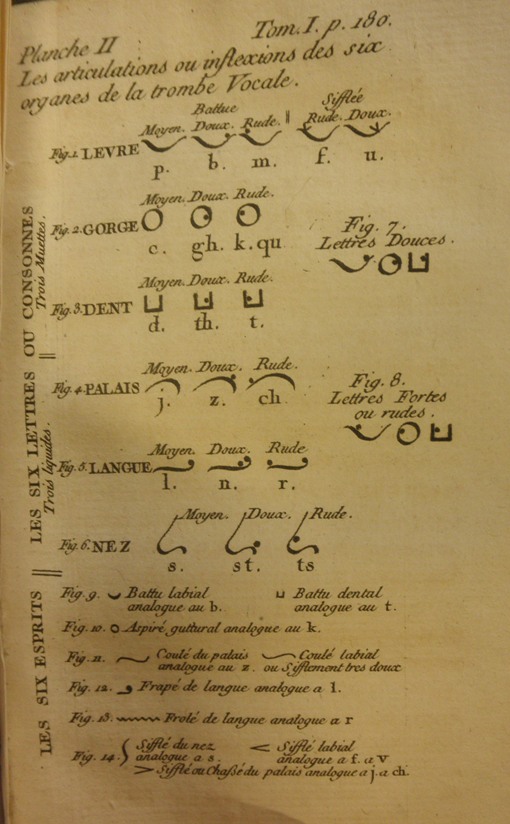 Planche II Tom. I. p. 180.
Les articulations ou inflexions des six
organes de la trombe Vocale.
Battue Sifflée
Moyen. Doux. Rude. Rude. Doux.
Fig. 1. LEVRE
p. b. m. f. u.
Moyen. Doux. Rude.
Fig. 2. GORGE
c. gh. k. qu
Fig. 7.
Lettres Douces.
Moyen. Doux. Rude.
Fig. 3. DENT
d. th. t.
Moyen. Doux. Rude.
Fig. 4. PALAIS
j. z. ch
Fig. 8.
Lettres Fortes
ou rudes.
Moyen. Doux. Rude
Fig. 5. LANGUE
l. n. r.
Moyen. Doux. Rude.
Fig. 6. NEZ
s. st. ts
LES SIX LETTRES OU CONSONNES
Trois Muettes.
Trois liquides.
LES SIX ESPRITS
Fig. 9. Battu labial Battu dental
analogue au b. analogue au t.
Fig. 10. Aspiré guttural analogue au k.
Fig. 11. Coulé du palais Coulé labial
analogue au z. ou Sifflement tres doux
Fig. 12. Frapé de langue analogue a l.
Fig. 13. Frolé de langue analogue a r
Fig. 14. Sifflé du nez Sifflé labial
analogue a s. analogue a f. a v
Sifflé ou Chaßé du palais analogue a j. a ch.